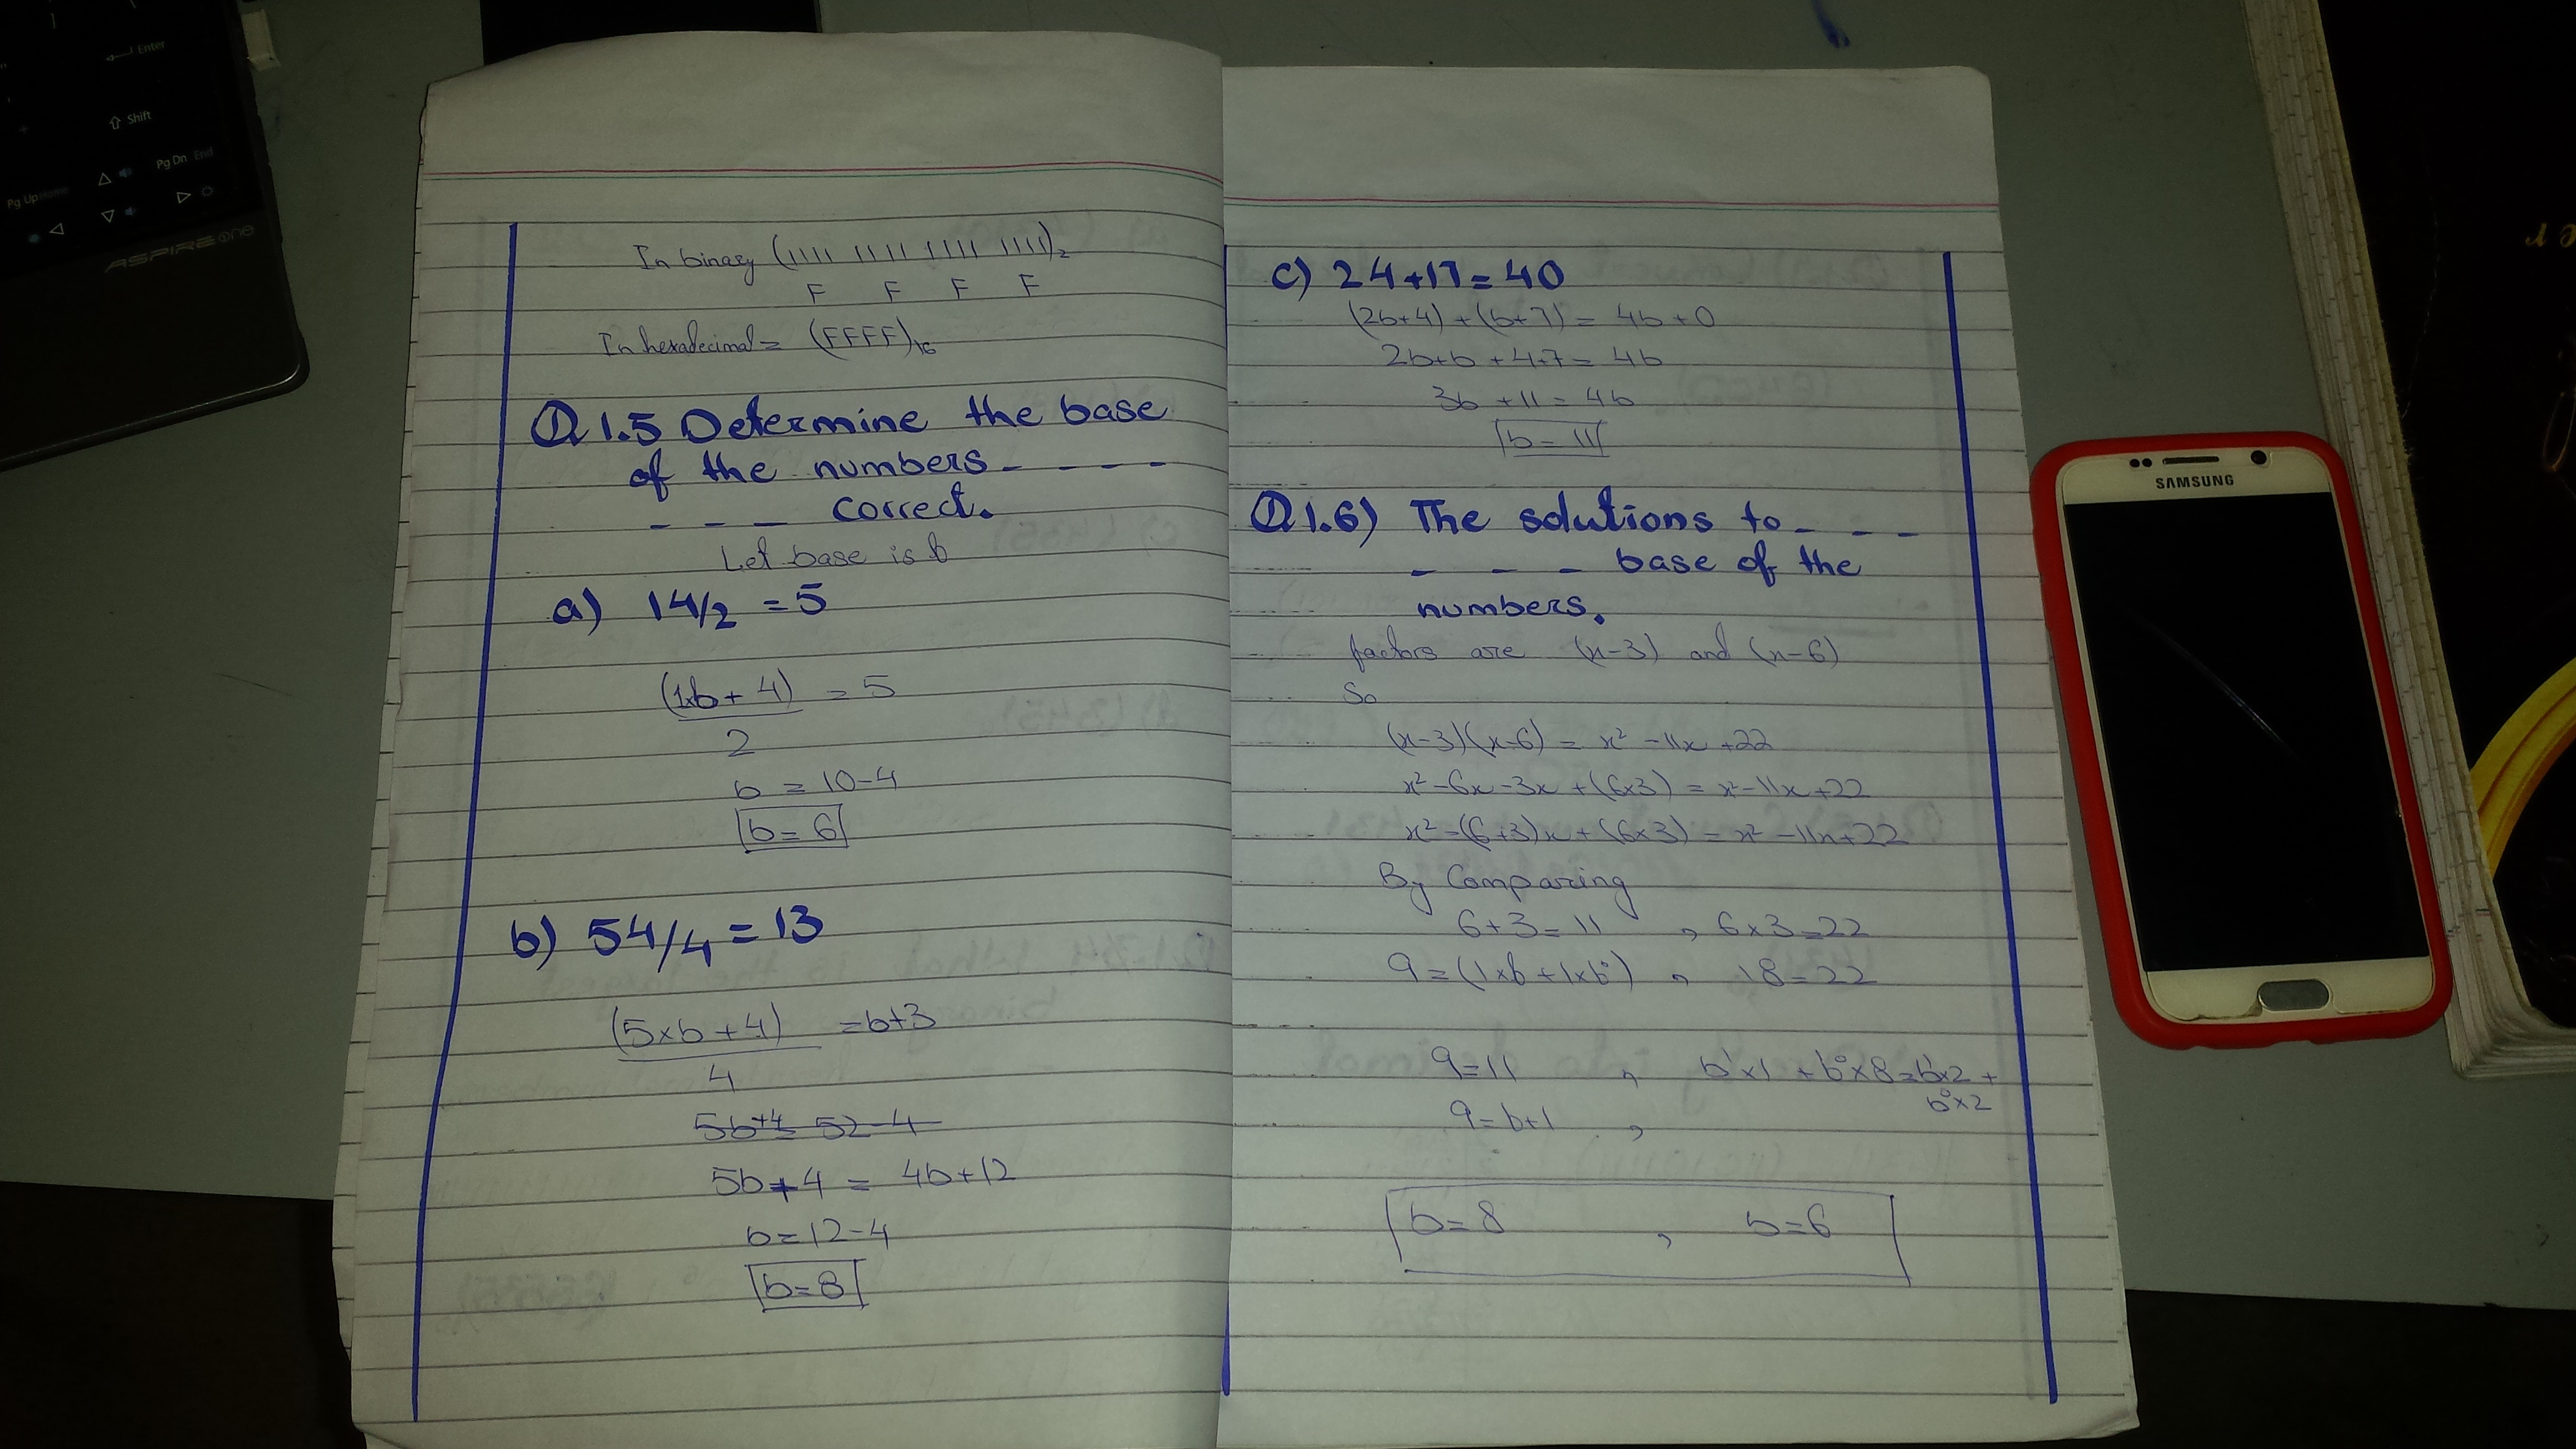 In binary (1111 1111 1111 1111)₂
F F F F
In hexadecimal = (FFFF)₁₆
Q 1.5 Determine the base
of the numbers - - - -
- - - - correct.
Let base is b
a) 14/2 = 5
(1xb + 4) = 5
2
b = 10-4
b = 6
b) 54/4 = 13
(5xb + 4) = b+3
4
5b+4 = 52-4
5b + 4 = 4b + 12
b = 12-4
b = 8
c) 24+17=40
(2b+4) + (b+7) = 4b + 0
2b+b + 4+7 = 4b
3b + 11 = 4b
b = 11
Q 1.6) The solutions to - - -
- - - - base of the
numbers.
factors are (x-3) and (x-6)
So
(x-3)(x-6) = x² - 11x + 22
x² - 6x - 3x + (6x3) = x² - 11x + 22
x² = (6+3)x + (6x3) = x² - 11x + 22
By Comparing
6+3 = 11 , 6 x 3 = 22
9 = (1xb + 1xb°) , 18 = 22
9 = 11 , b'x1 + b°x8 = b'x2 +
b°x2
9 = b+1 ,
b = 8 , b = 6
SAMSUNG
ASPIRE one
Enter
Shift
Pg Up
Pg Dn
End